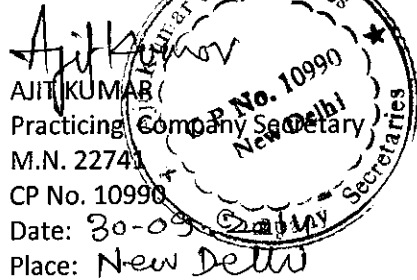 Ajit Kumar
AJIT KUMAR
Practicing Company Secretary
M.N. 22741
CP No. 10990
Date: 30-09-
Place: New Delhi
C.P. No. 10990
New Delhi
Company Secretaries